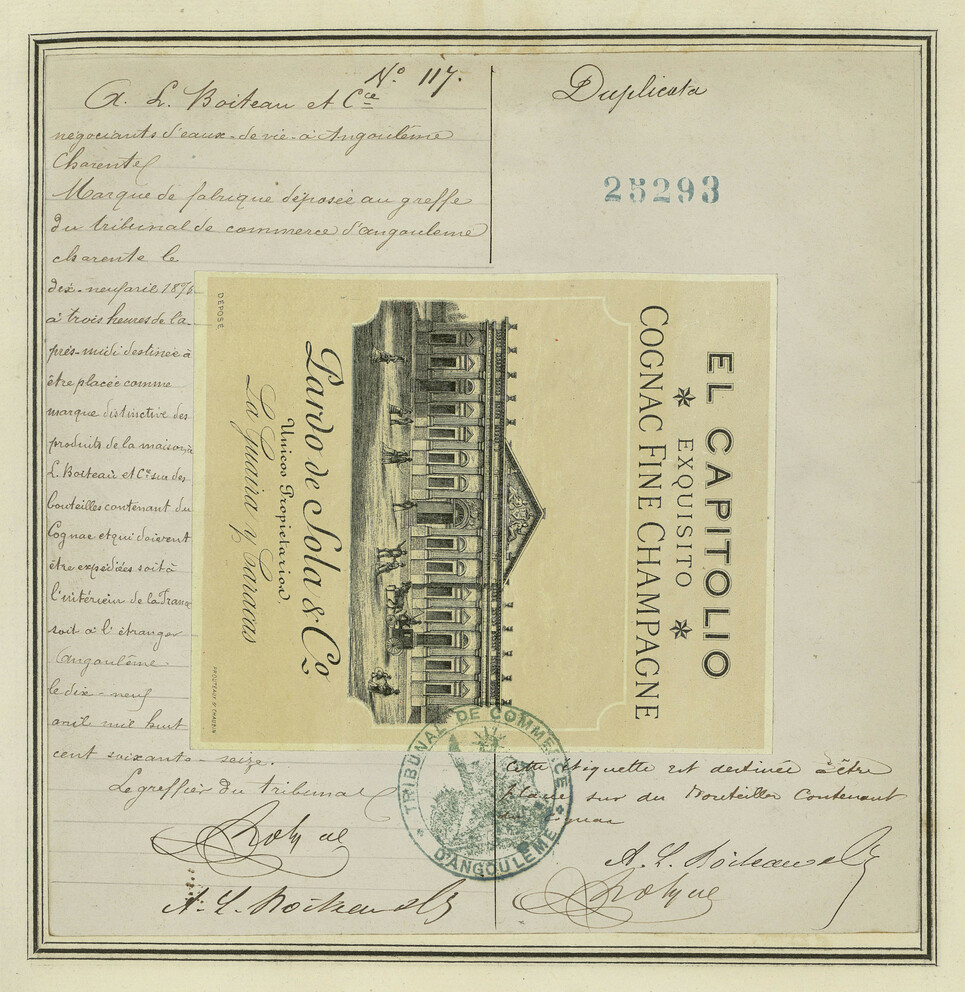 Nº 117.
A. L. Boiteau et Cie
négociants d'eaux-de-vie à Angoulême
Charente
Marque de fabrique déposée au greffe
du tribunal de commerce d'angouleme
charente le
dix-neuf avril 1876
à trois heures de la
près-midi destinée à
être placée comme
marque distinctive des
produits de la maison A.
L. Boiteau et Cie sur des
bouteilles contenant du
Cognac et qui doivent
être expédiées soit à
l'intérieur de la France
soit à l'étranger
Angoulême.
le dix-neuf
avril mil huit
cent soixante-seize.
Le greffier du tribunal
A. L. Boiteau
Duplicata
25293
EL CAPITOLIO
EXQUISITO
COGNAC FINE CHAMPAGNE
Pardo de Sola & Co
Unicos Propietarios,
La Guaira y Caracas
DEPOSÉ
TRIBUNAL DE COMMERCE
D'ANGOULEME
Cette étiquette est destinée à être
placée sur des Bouteilles Contenant
du Cognac
A. L. Boiteau